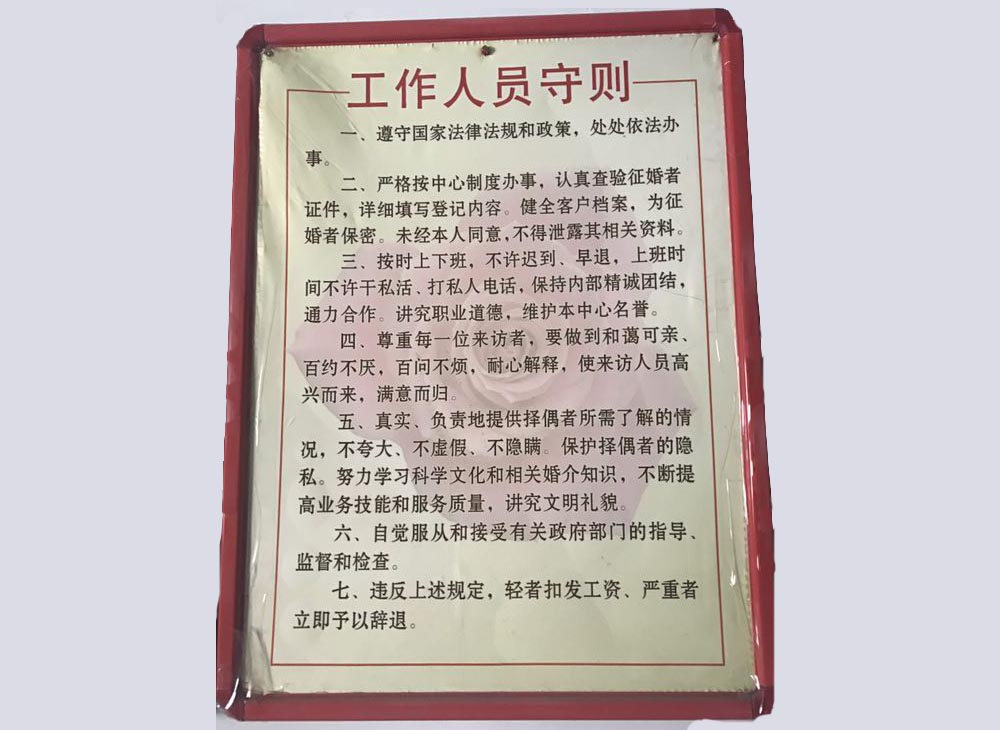 工作人员守则
一、遵守国家法律法规和政策，处处依法办
事。
二、严格按中心制度办事，认真查验征婚者
证件，详细填写登记内容。健全客户档案，为征
婚者保密。未经本人同意，不得泄露其相关资料。
三、按时上下班，不许迟到、早退，上班时
间不许干私活、打私人电话，保持内部精诚团结，
通力合作。讲究职业道德，维护本中心名誉。
四、尊重每一位来访者，要做到和蔼可亲、
百约不厌，百问不烦，耐心解释，使来访人员高
兴而来，满意而归。
五、真实、负责地提供择偶者所需了解的情
况，不夸大、不虚假、不隐瞒。保护择偶者的隐
私。努力学习科学文化和相关婚介知识，不断提
高业务技能和服务质量，讲究文明礼貌。
六、自觉服从和接受有关政府部门的指导、
监督和检查。
七、违反上述规定，轻者扣发工资、严重者
立即予以辞退。